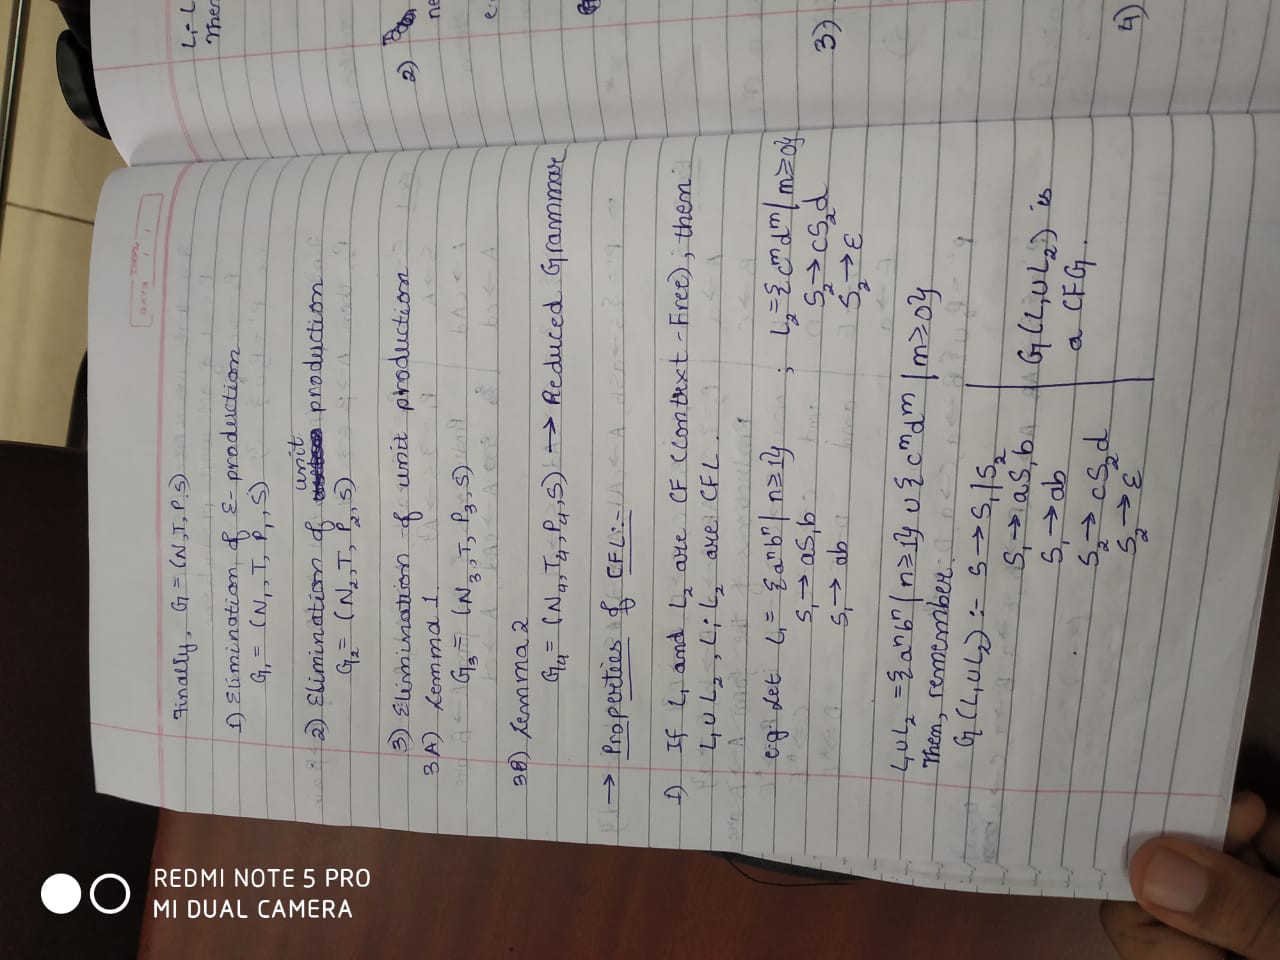 REDMI NOTE 5 PRO
MI DUAL CAMERA
DATE
Finally, G = (N,T,P,S)
1) Elimination of ε- production
G₁ = (N₁, T, P₁, S)
unit
2) Elimination of production
G₂ = (N₂, T, P₂, S)
3) Elimination of unit production
3A) Lemma 1.
G₃ = (N₃, T, P₃, S)
3B) Lemma 2
G₄ = (N₄, T₄, P₄, S) → Reduced Grammar
→ Properties of CFL:-
1) If L₁ and L₂ are CF (Context-Free), then
L₁ ∪ L₂, L₁·L₂ are CFL.
e.g. Let L₁ = {aⁿbⁿ | n≥1} ; L₂ = {cᵐdᵐ | m≥0}
S₁ → aS₁b S₂ → cS₂d
S₁ → ab S₂ → ε
L₁∪L₂ = {aⁿbⁿ | n≥1} ∪ {cᵐdᵐ | m≥0}
Then, remember:
G(L₁∪L₂) :- S → S₁|S₂
S₁ → aS₁b
S₁ → ab
S₂ → cS₂d
S₂ → ε
G(L₁∪L₂) is
a CFG.
L₁· L
Then
2)
ne
e.
3)
4)